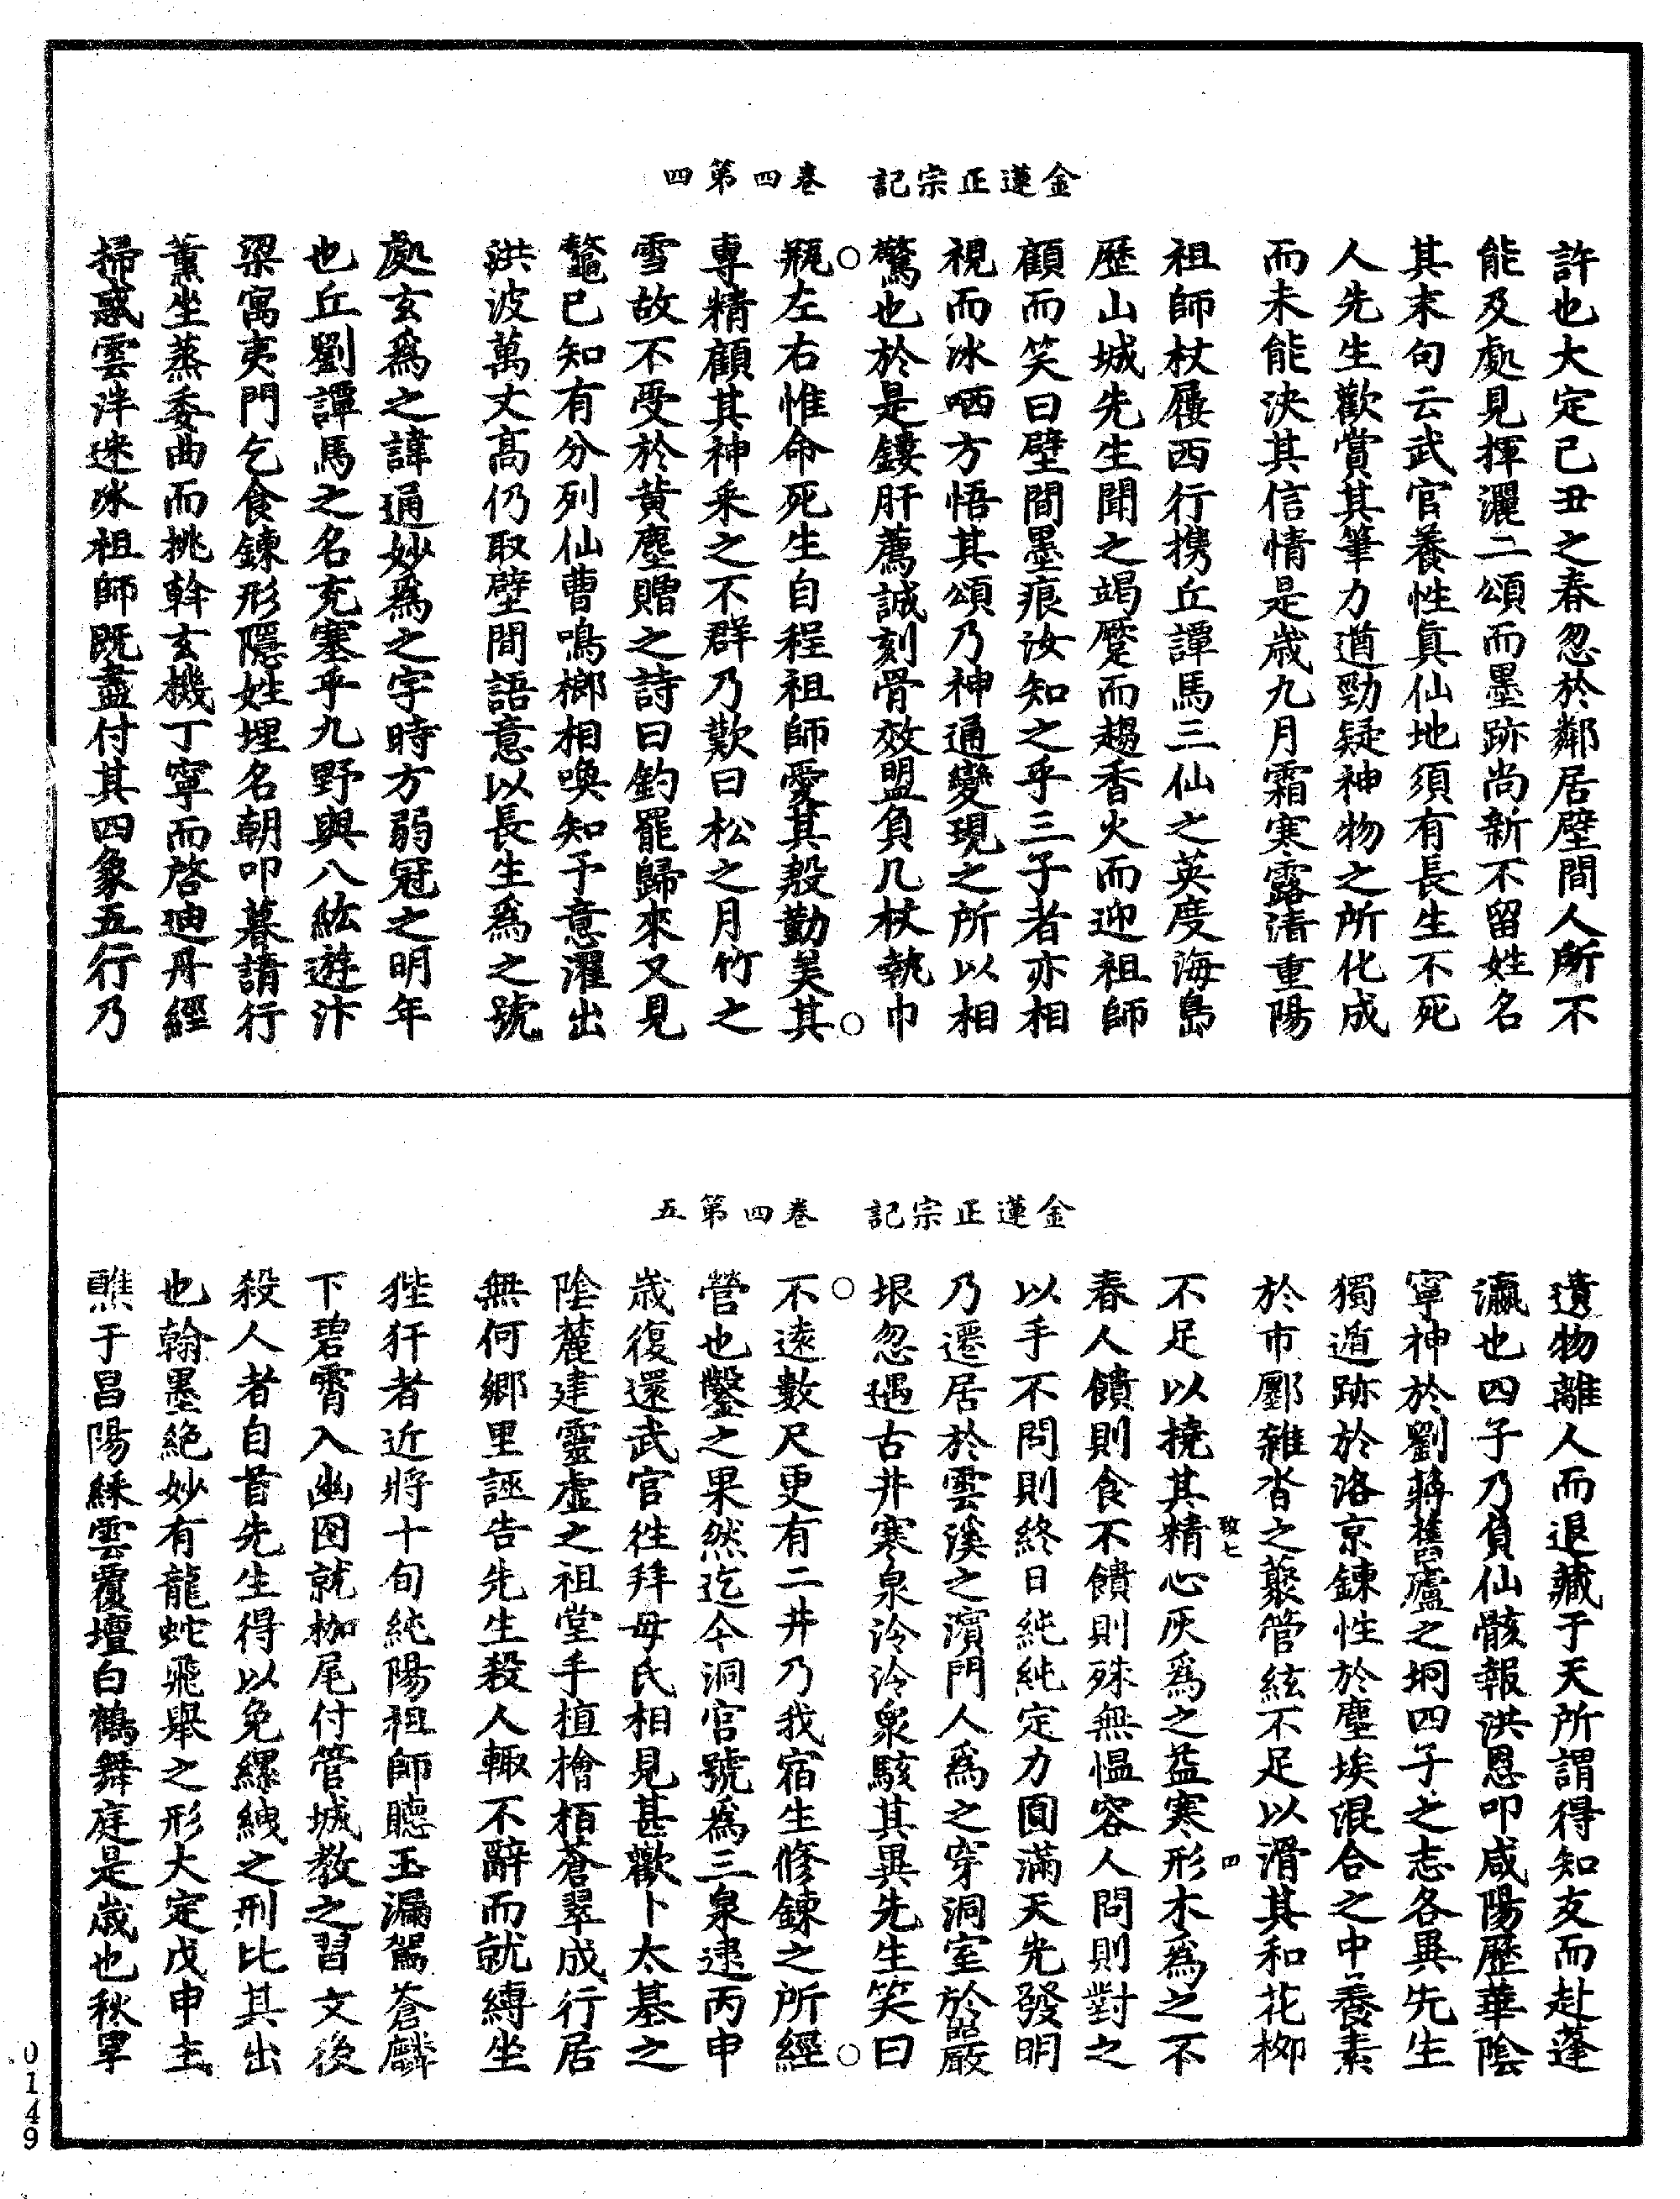 金蓮正宗記　卷四第四
許也大定己丑之春忽於鄰居壁間人所不
能及處見揮灑二頌而墨跡尚新不留姓名
其末句云武官養性真仙地須有長生不死
人先生歡賞其筆力遒勁疑神物之所化成
而未能決其信情是歲九月霜寒露清重陽
祖師杖屨西行攜丘譚馬三仙之英度海島
歷山城先生聞之竭蹷而趨香火而迎祖師
顧而笑曰壁間墨痕汝知之乎三子者亦相
視而冰哂方悟其頌乃神通變現之所以相
驚也於是鏤肝薦誠刻骨效盟負几杖執巾
瓶左右惟命死生自程祖師愛其慇勤美其
專精顧其神采之不群乃歎曰松之月竹之
雪故不受於黃塵贈之詩曰釣罷歸來又見
鼇已知有分列仙曹鳴榔相喚知予意濯出
洪波萬丈高仍取壁間語意以長生為之號
處玄為之諱通妙為之字時方弱冠之明年
也丘劉譚馬之名充塞乎九野與八紘遊汴
梁寓夷門乞食鍊形隱姓埋名朝叩暮請行
薰坐蒸委曲而挑斡玄機丁寧而啓迪丹經
掃惑雲泮迷冰祖師既盡付其四象五行乃
金蓮正宗記　卷四第五
遺物離人而退藏于天所謂得知友而赴蓬
瀛也四子乃負仙骸報洪恩叩咸陽歷華陰
寧神於劉蔣舊廬之垌四子之志各異先生
獨遁跡於洛京鍊性於塵埃混合之中養素
於市鄽雜沓之藂管絃不足以滑其和花柳
不足以撓其精心灰為之益寒形木為之不
敬七
四
春人饋則食不饋則殊無慍容人問則對之
以手不問則終日純純定力圓滿天先發明
乃遷居於雲溪之濵門人為之穿洞室於巖
垠忽遇古井寒泉泠泠衆駭其異先生笑曰
不遠數尺更有二井乃我宿生修鍊之所經
營也鑿之果然迄今洞宮號為三泉逮丙申
歲復還武官徃拜母氏相見甚歡卜太基之
陰麓建靈虛之祖堂手植檜栢蒼翠成行居
無何鄉里誣告先生殺人輙不辭而就縛坐
狴犴者近將十旬純陽祖師聽玉漏駕蒼麟
下碧霄入幽囹就枷尾付管城教之習文後
殺人者自首先生得以免縲絏之刑比其出
也翰墨絶妙有龍蛇飛舉之形大定戊申主
醮于昌陽綵雲覆壇白鶴舞庭是歲也秋旱
0149